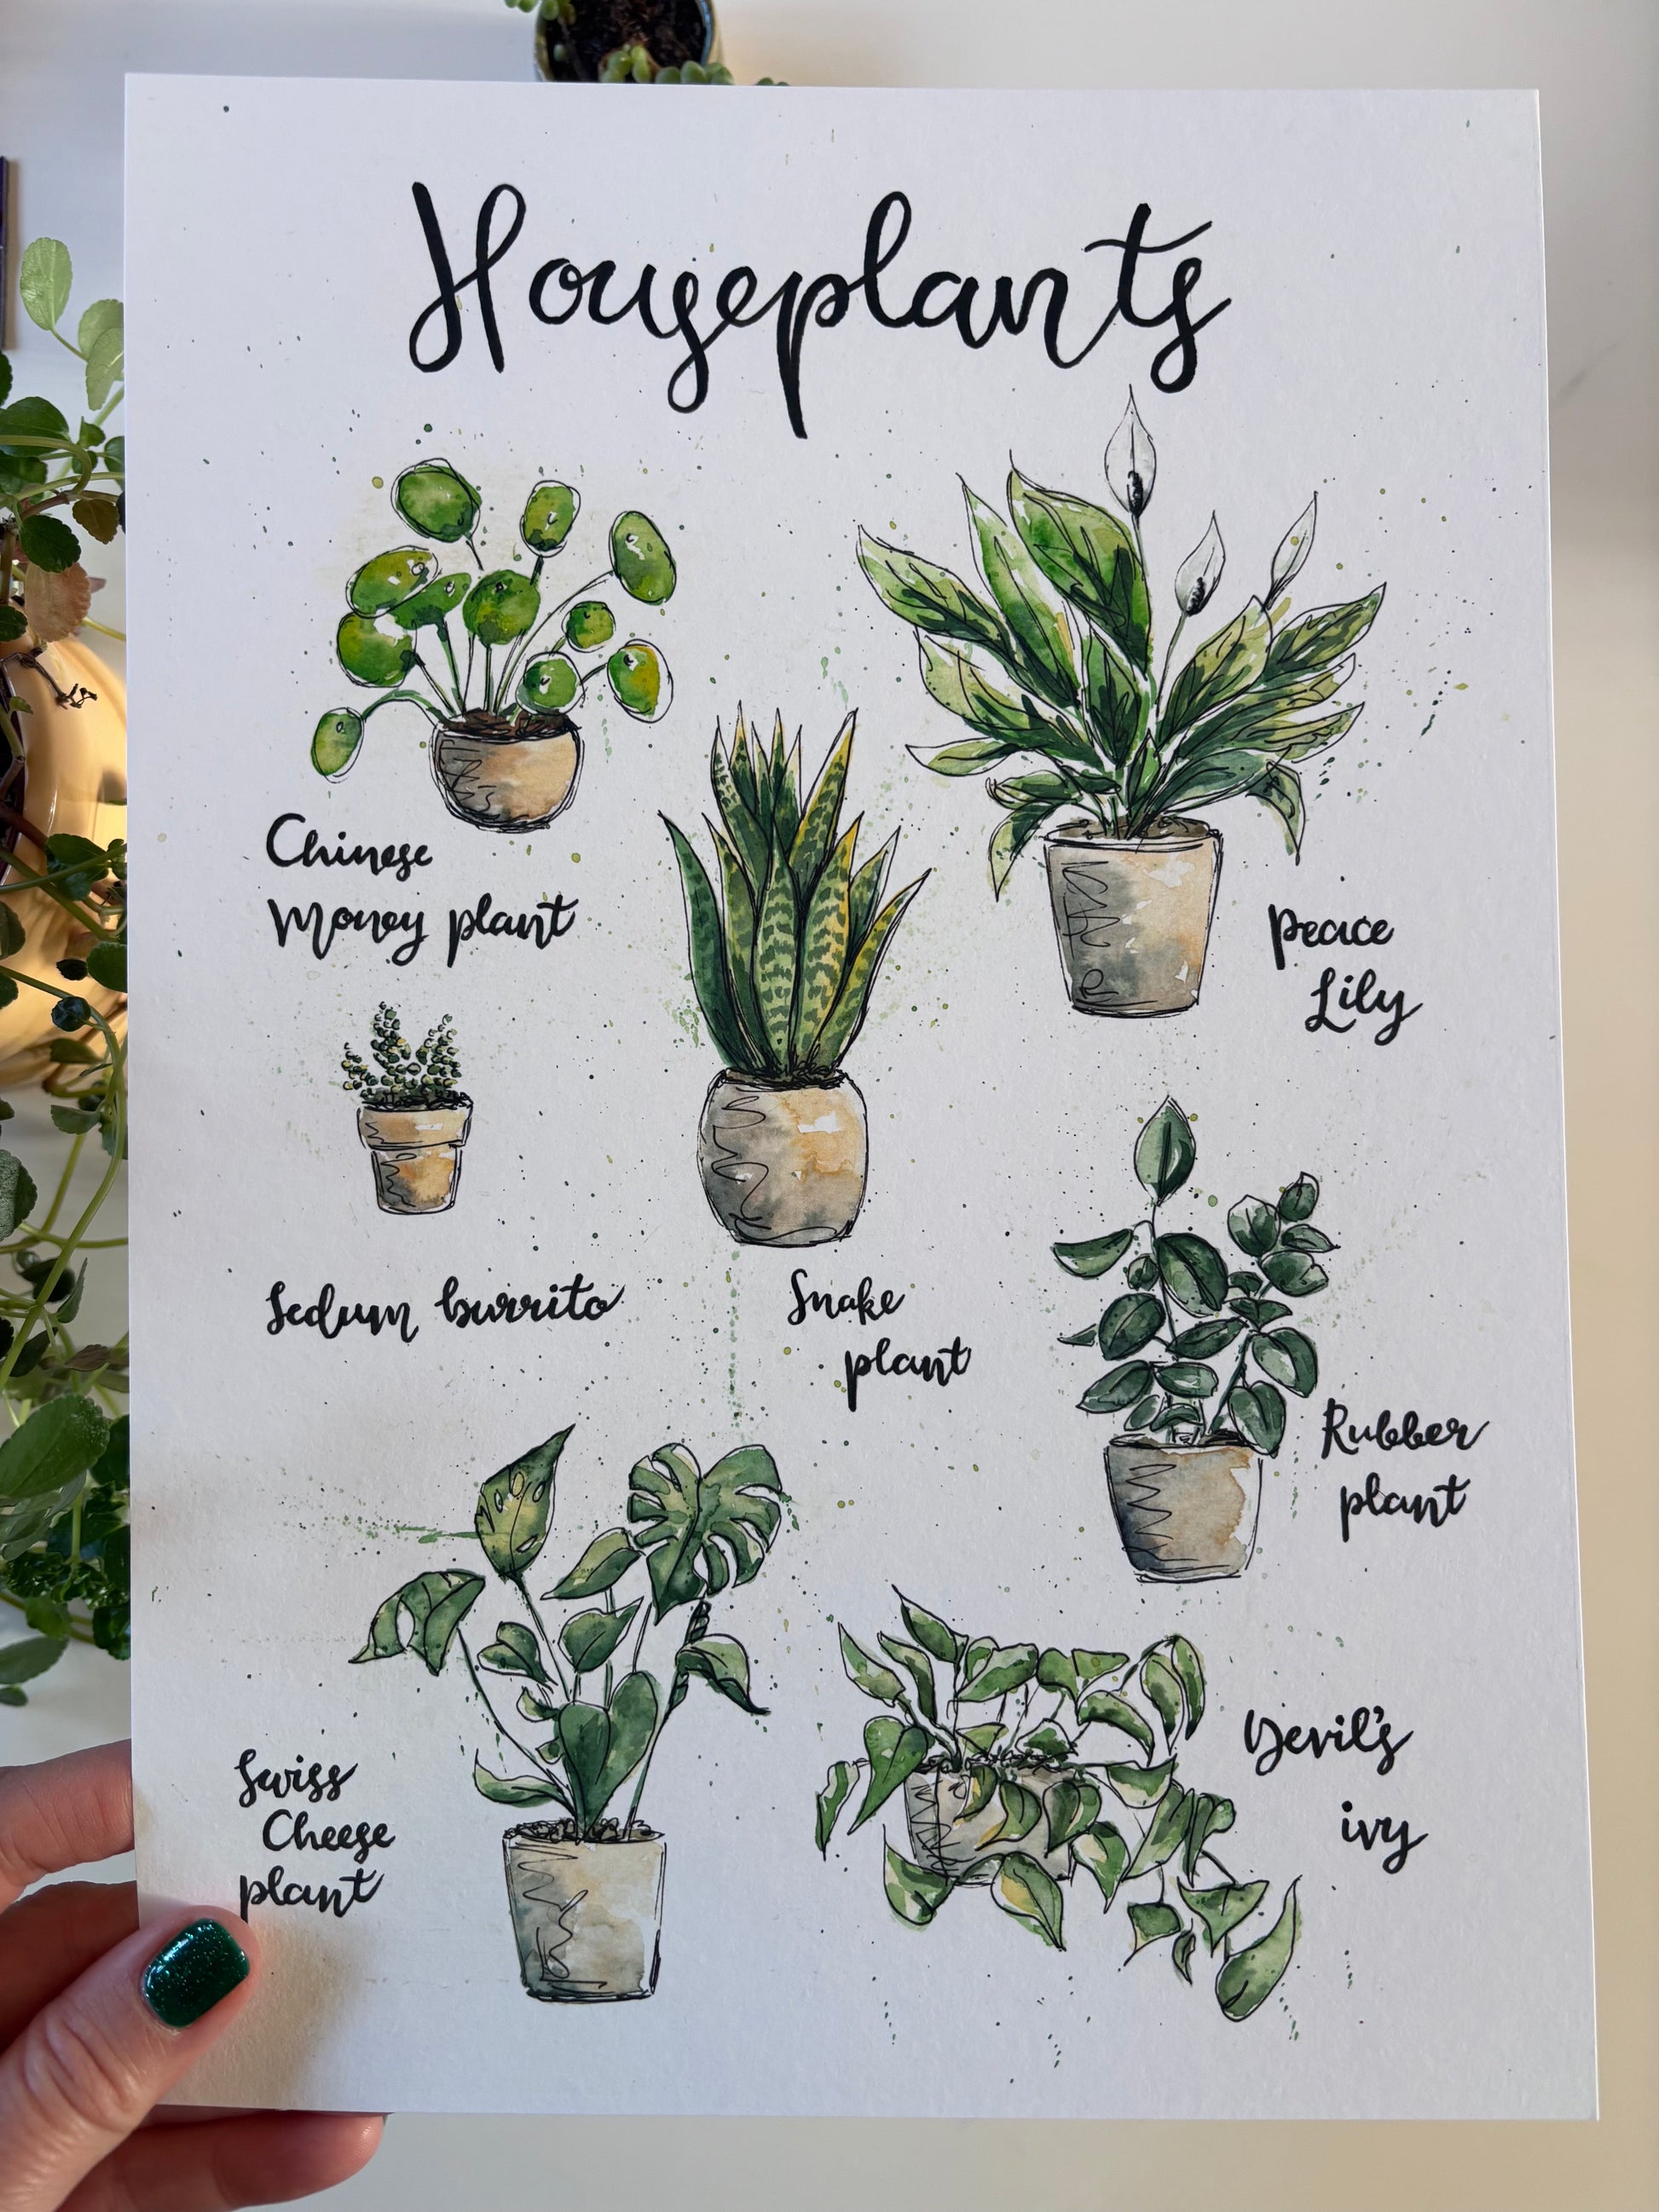 Houseplants
Chinese
Money plant
Peace
Lily
Sedum burrito
Snake
plant
Rubber
plant
Swiss
Cheese
plant
Devil's
ivy